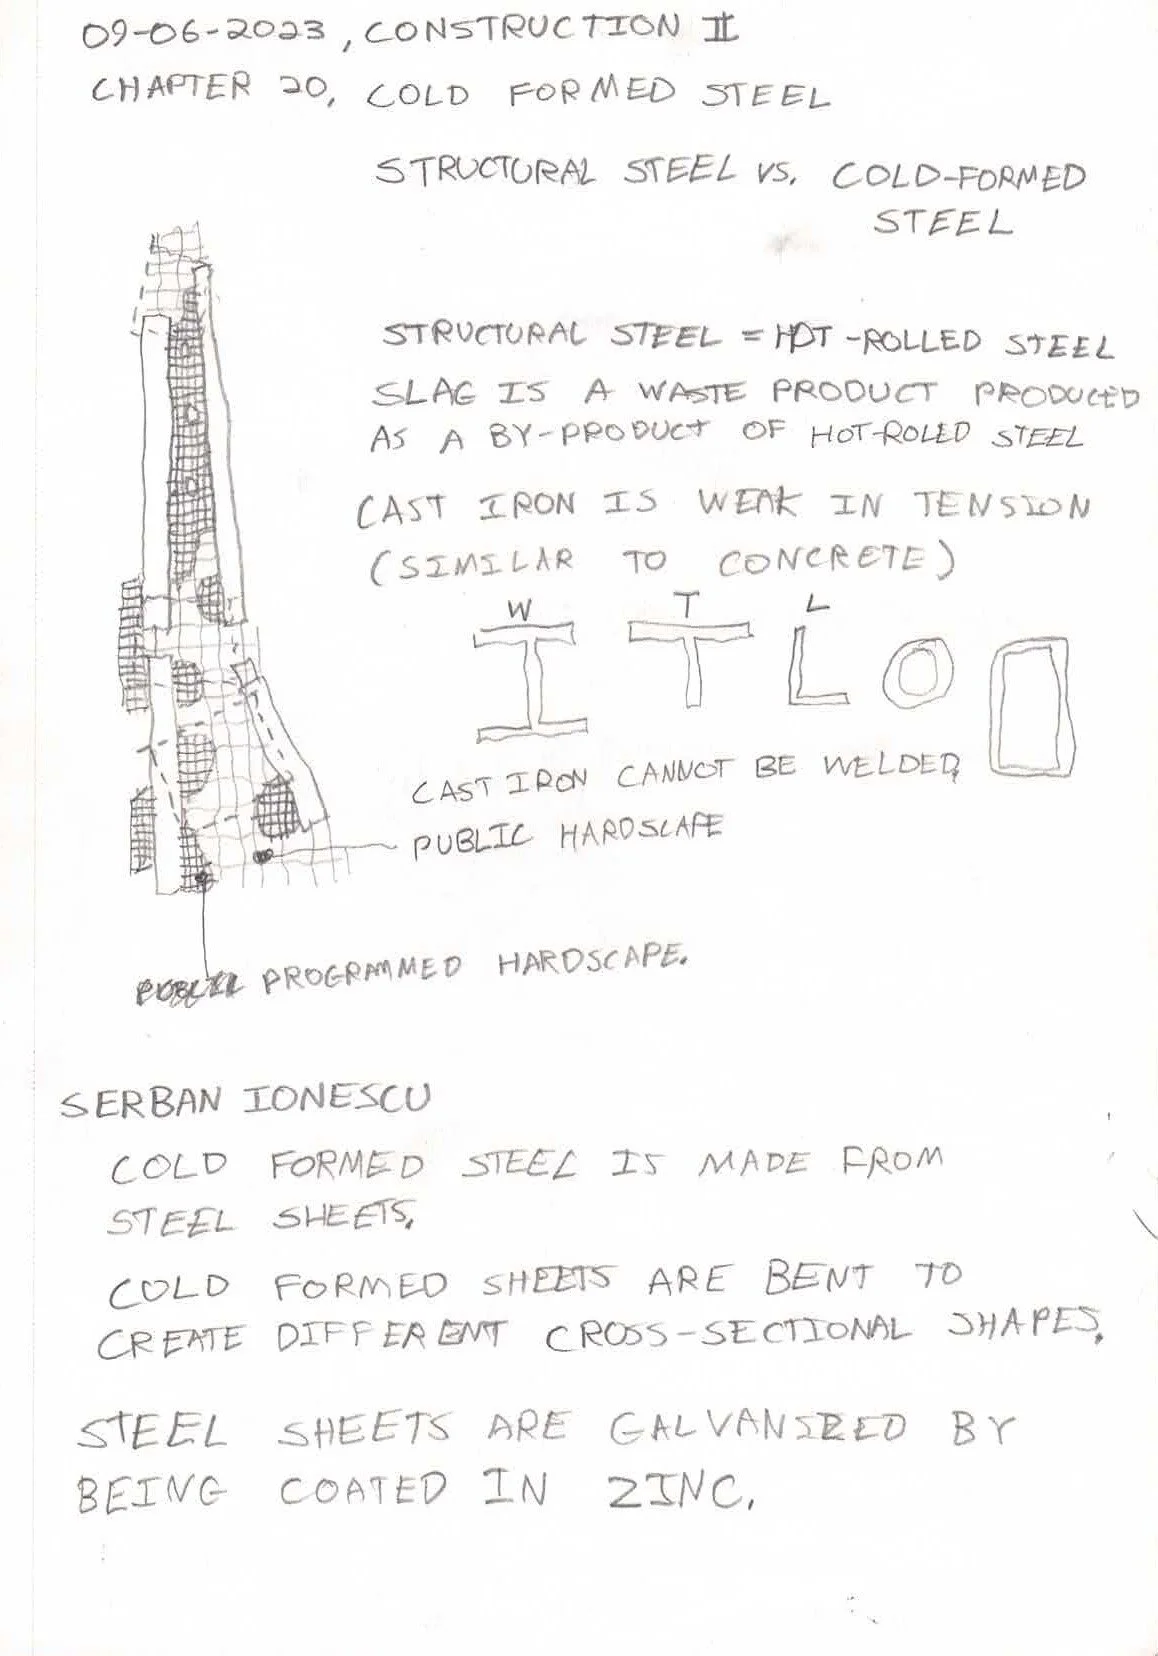 09-06-2023, CONSTRUCTION II
CHAPTER 20, COLD FORMED STEEL
STRUCTURAL STEEL VS. COLD-FORMED
STEEL
STRUCTURAL STEEL = HOT-ROLLED STEEL
SLAG IS A WASTE PRODUCT PRODUCED
AS A BY-PRODUCT OF HOT-ROLLED STEEL
CAST IRON IS WEAK IN TENSION
(SIMILAR TO CONCRETE)
W T L
CAST IRON CANNOT BE WELDED,
PUBLIC HARDSCAPE
PROGRAMMED HARDSCAPE.
SERBAN IONESCU
COLD FORMED STEEL IS MADE FROM
STEEL SHEETS.
COLD FORMED SHEETS ARE BENT TO
CREATE DIFFERENT CROSS-SECTIONAL SHAPES.
STEEL SHEETS ARE GALVANIZED BY
BEING COATED IN ZINC.